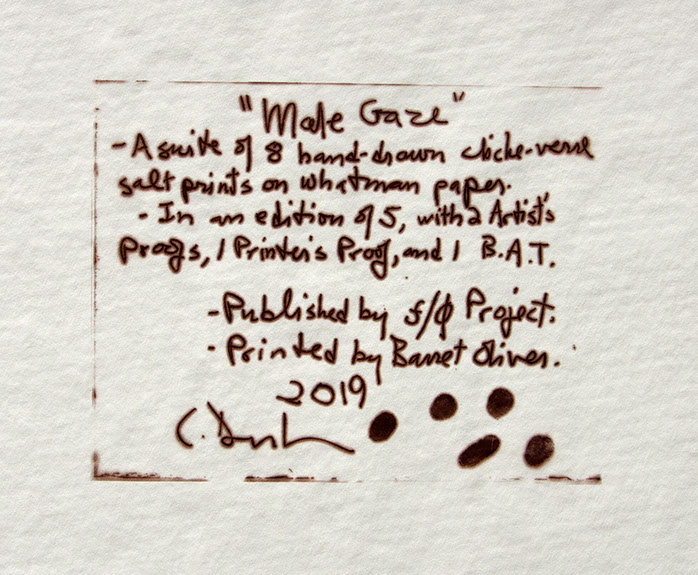 "Male Gaze"
- A suite of 8 hand-drawn cliche-verre
salt prints on whatman paper.
- In an edition of 5, with 2 Artist's
Proofs, 1 Printer's Proof, and 1 B.A.T.
- Published by f/Φ Project.
- Printed by Barret Oliver.
2019